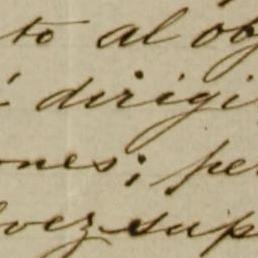 to al ob
é dirigi
ones; pe
vez sup